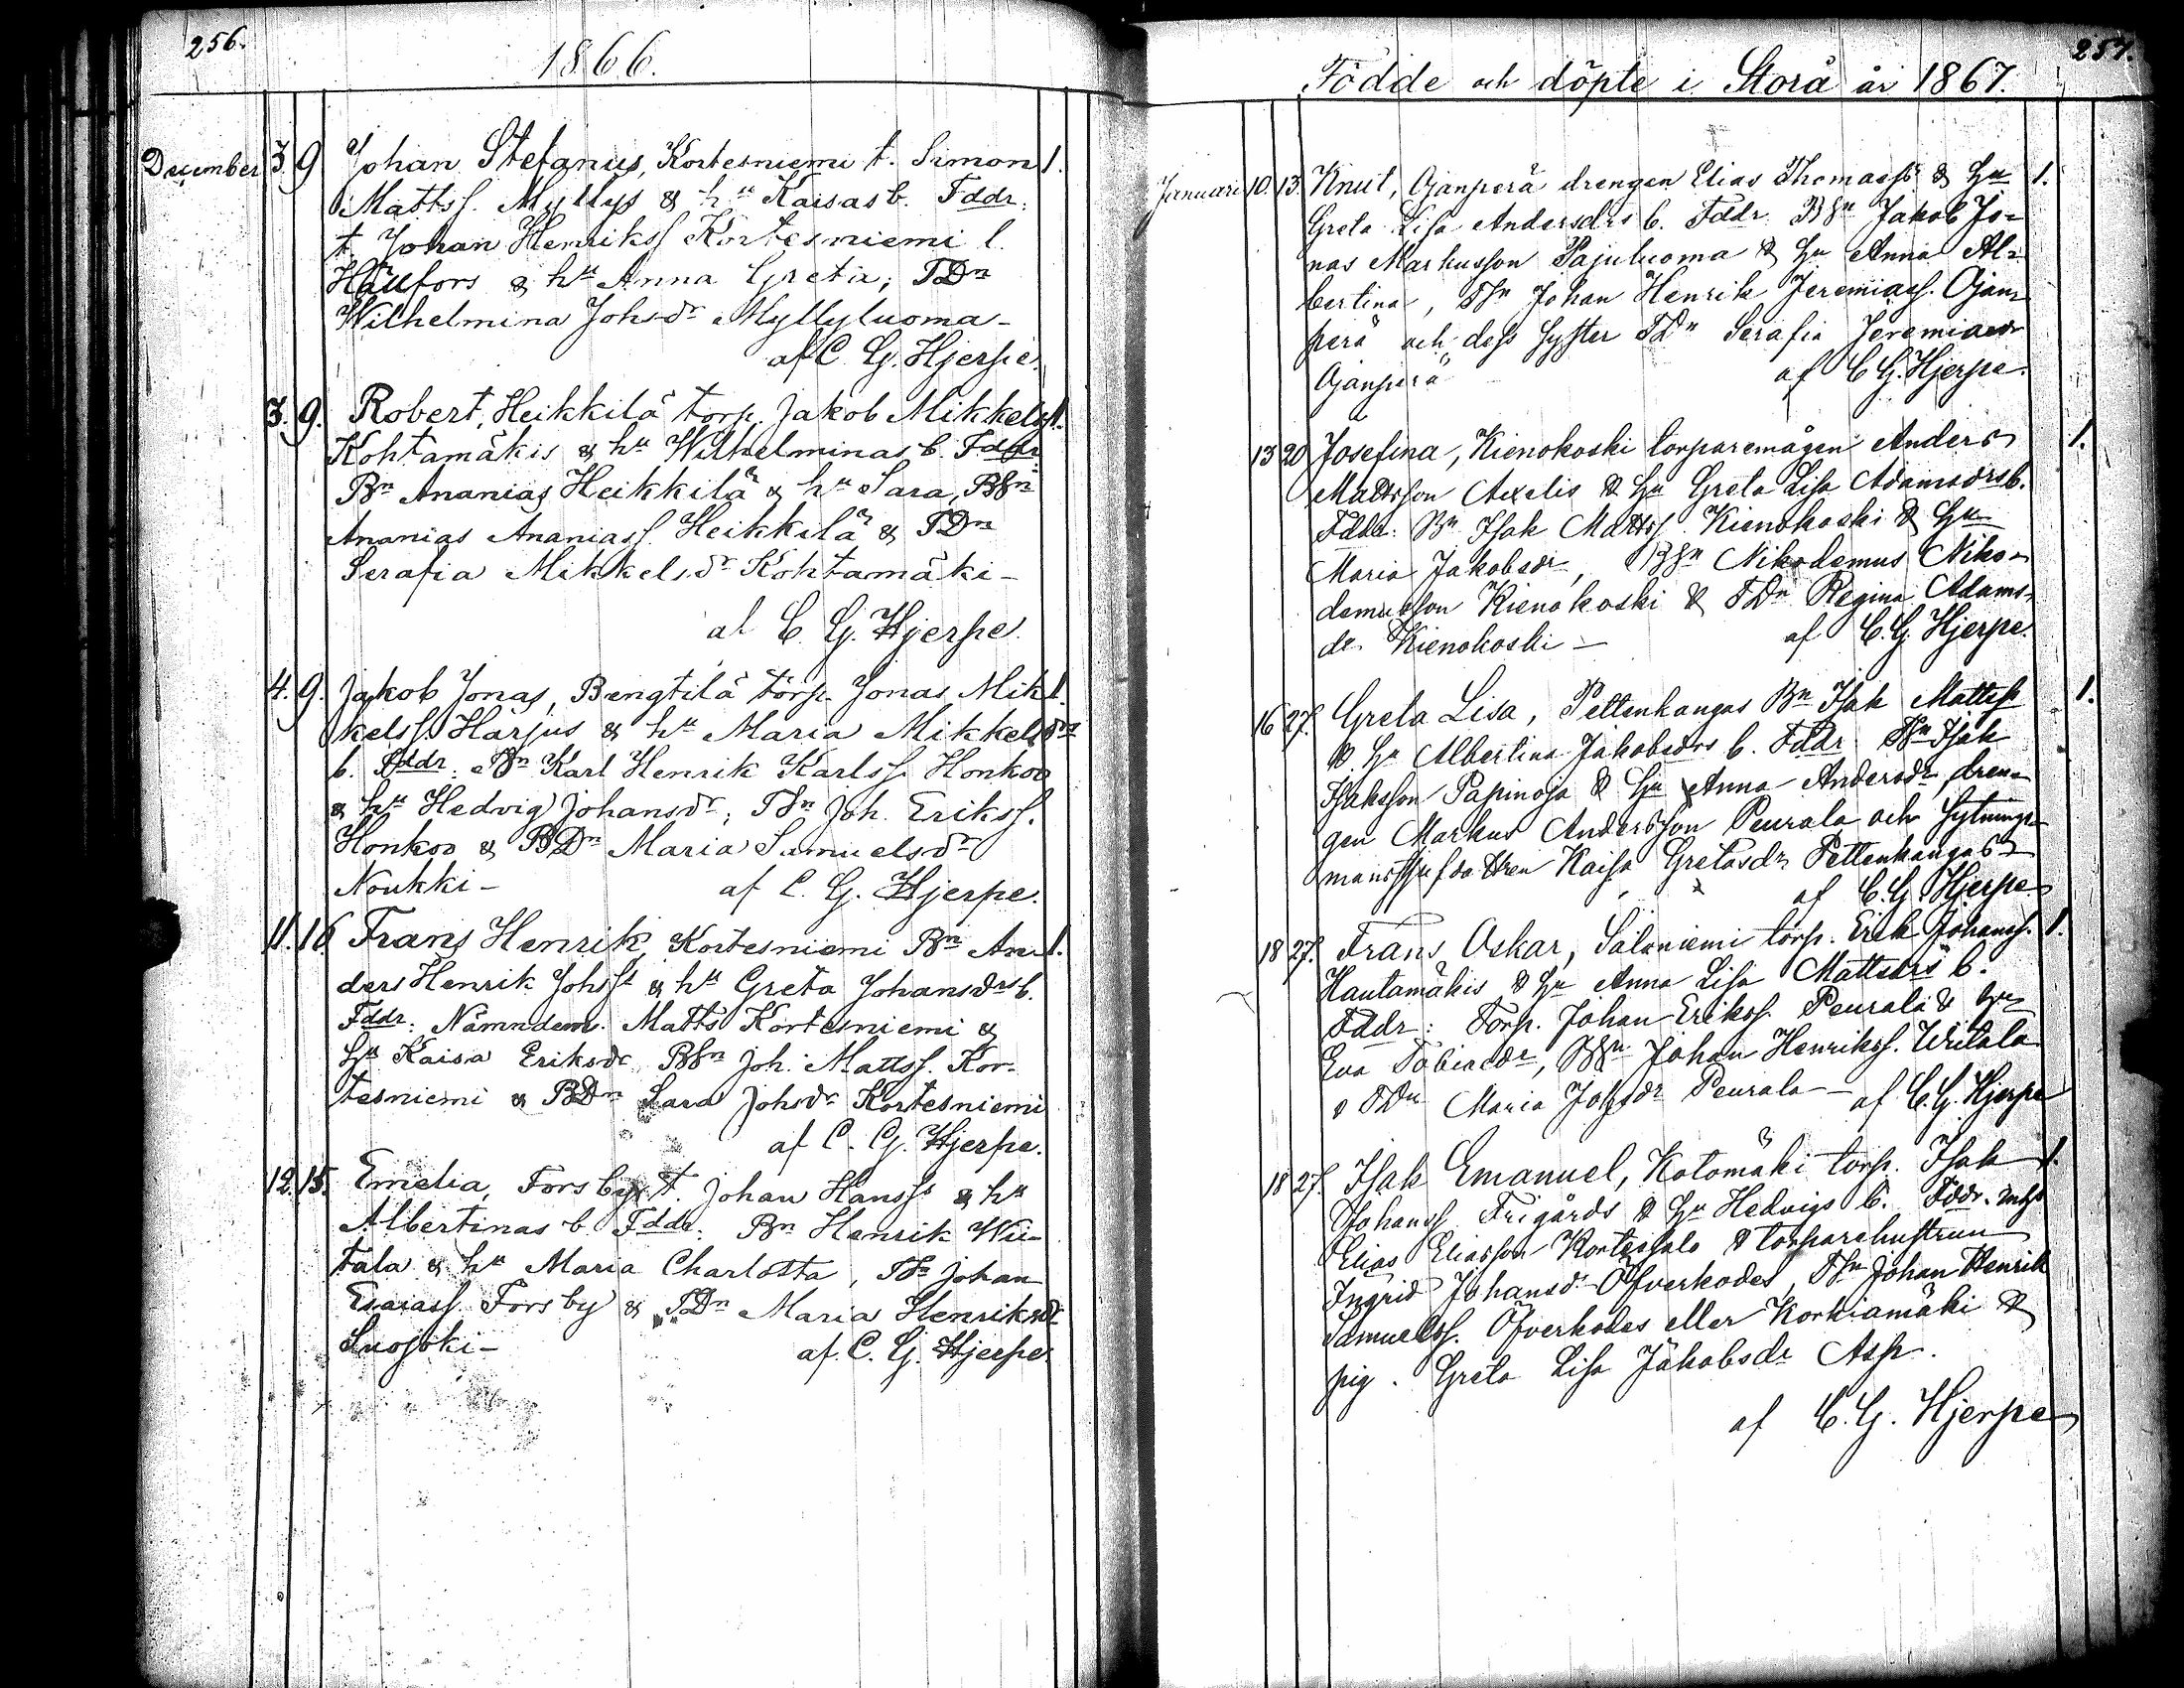 256.
1866.
December 3. 9 Johan Stefanus, Kortesniemi t. Simon 1.
Mattss. Myllys & hu Kaisas b. Fddr:
t. Johan Henrikss Kortesniemi l.
Hällfors & hu Anna Greta; TDn
Wilhelmina Johsdr Myllyluoma –
af C. G. Hjerpe.
3. 9. Robert, Heikkilä torp. Jakob Mikkelss 1.
Kohtamäkis & hu Wilhelminas b. Fddr
Bn Ananias Heikkilä & hu Sara, BSn
Ananias Ananiass. Heikkilä & TDn
Serafia Mikkelsdr Kohtamäki –
af C. G. Hjerpe.
4. 9. Jakob Jonas, Bengtilä torp. Jonas Mik 1.
kelss. Harjus & hu Maria Mikkelsdrs
b. Fddr: Bn Karl Henrik Karlss. Honkoo
& hu Hedvig Johansdr; TSn Joh. Erikss.
Honkoo & BDn Maria Samuelsdr
Noukki – af C. G. Hjerpe.
11. 16 Frans Henrik, Kortesniemi Bn An 1.
ders Henrik Johss & hu Greta Johansdrs b.
Fddr: Nämndem. Matts Kortesniemi &
hu Kaisa Eriksdr BSn Joh. Mattss. Kor-
tesniemi & BDn Sara Johsdr Kortesniemi
af C. G. Hjerpe.
12. 15. Emelia, Forsby t. Johan Hanss & hu
Albertinas b. Fddr: Bn Henrik Wii-
tala & hu Maria Charlotta, TSn Johan
Esaiass. Forsby & TDn Maria Henriksdr
Suojoki – af C. G. Hjerpe.
257.
Födde och döpte i Storå år 1867.
Januari 10. 13. Knut, Ojanperä drengen Elias Thomass & hu 1.
Greta Lisa Andersdrs b. Fddr BSn Jakob Jo-
nas Markusson Pajuluoma & hu Anna Al-
bertina, TSn Johan Henrik Jeremiass. Ojan-
perä och dess syster TDn Serafia Jeremiaedr
Ojanperä af C. G. Hjerpe.
13 20 Josefina, Kienokoski torparemågen Anders 1.
Mattsson Axelis & hu Greta Lisa Adamsdrs b.
Fddr: Bn Isak Mattss Kienokoski & hu
Maria Jakobsdr, BSn Nikodemus Niko-
demusson Kienokoski & TDn Regina Adams-
dr Kienokoski – af C. G. Hjerpe.
16 27. Greta Lisa, Pettenkangas Bn Isak Mattss 1.
& hu Albertina Jakobsdrs b. Fddr: TSn Isak
Isaksson Papinoja & hu Anna Andersdr, dren-
gen Markus Andersson Peurala och Sytnings-
mans dottren Kaisa Gretasdr Pettenkangas
af C. G. Hjerpe
18 27. Frans Oskar, Saloniemi torp. Erik Johanss. 1.
Hautamäkis & hu Anna Lisa Mattsdrs b.
Fddr: Torp. Johan Erikss. Peurala & hu
Eva Tobiaedr, BSn Johan Henrikss. Witala
& TDn Maria Johsdr Peurala – af C. G. Hjerpe
18 27. Isak Emanuel, Kotomäki torp. Isak 1.
Johanss Frigårds & hu Hedvigs b. Fddr.
Elias Eliasson Kortessalo & torparehustrun
Ingrid Johansdr Öfverkodes, TSn Johan Henrik
Samuelss. Öfverkodes eller Korkiamäki &
pig. Greta Lisa Jakobsdr Asp.
af C. G. Hjerpe